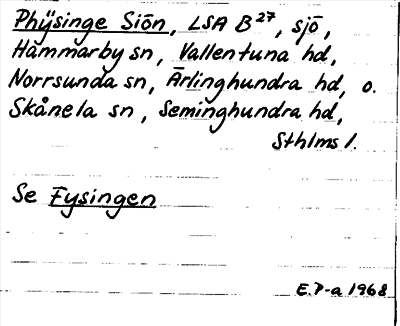 Phÿsinge Siön, LSA B27, sjö,
Hammarby sn, Vallentuna hd,
Norrsunda sn, Ärlinghundra hd, o.
Skånela sn, Seminghundra hd,
Sthlms l.
Se Fysingen
E.P-a 1968